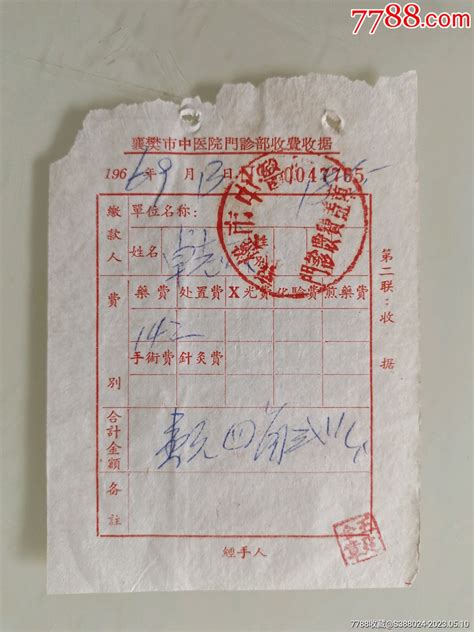 7788.com
襄樊市中医院門診部收費收据
196 年 9 月 13 日 0047765
缴款人
單位名称:
姓名
費別
藥費 处置費 X光費 化驗費 煎藥費
142
手術費 針灸費
合計金額
壹元四角弍分
备註
經手人
第二联:收据
門診部收費專章
7788收藏@S388024-2023.05.10